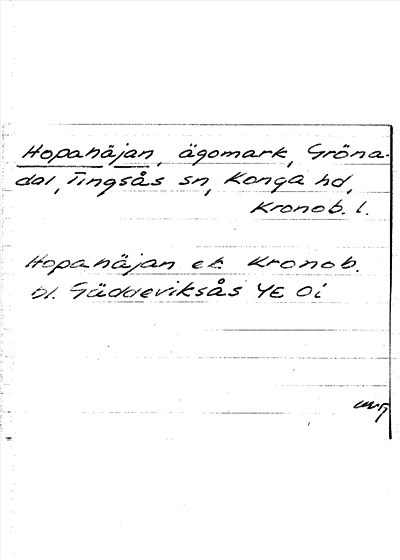 Hopahäjan, ägomark, Gröna-
dal, Tingsås sn, Konga hd,
Kronob. l.
Hopahäjan ek. Kronob.
bl. Gäddeviksås YE Oi